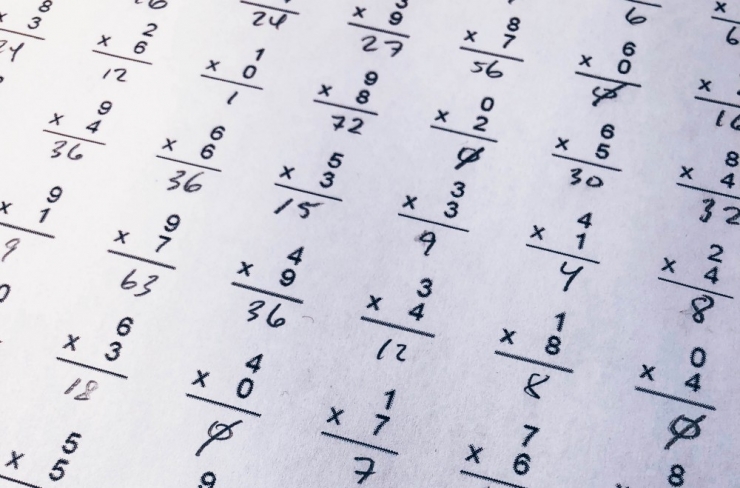 x
6 6
8 6
x 9 x 7 x 0 x
24 27 56 0 16
8 2 1 9 0 6 8
x 3 x 6 x 0 x 8 x 2 x 5 x 4
24 12 1 72 0 30 32
9 6 5 3 4 2
x 4 x 6 x 3 x 3 x 1 x 4
36 36 15 9 4 8
9 9 4 3 1 0
x 1 x 7 x 9 x 4 x 8 x 4
9 63 36 12 8 0
6 4 1 7
x 3 x 0 x 7 x 6
18 0 7
5 9 8
x 5